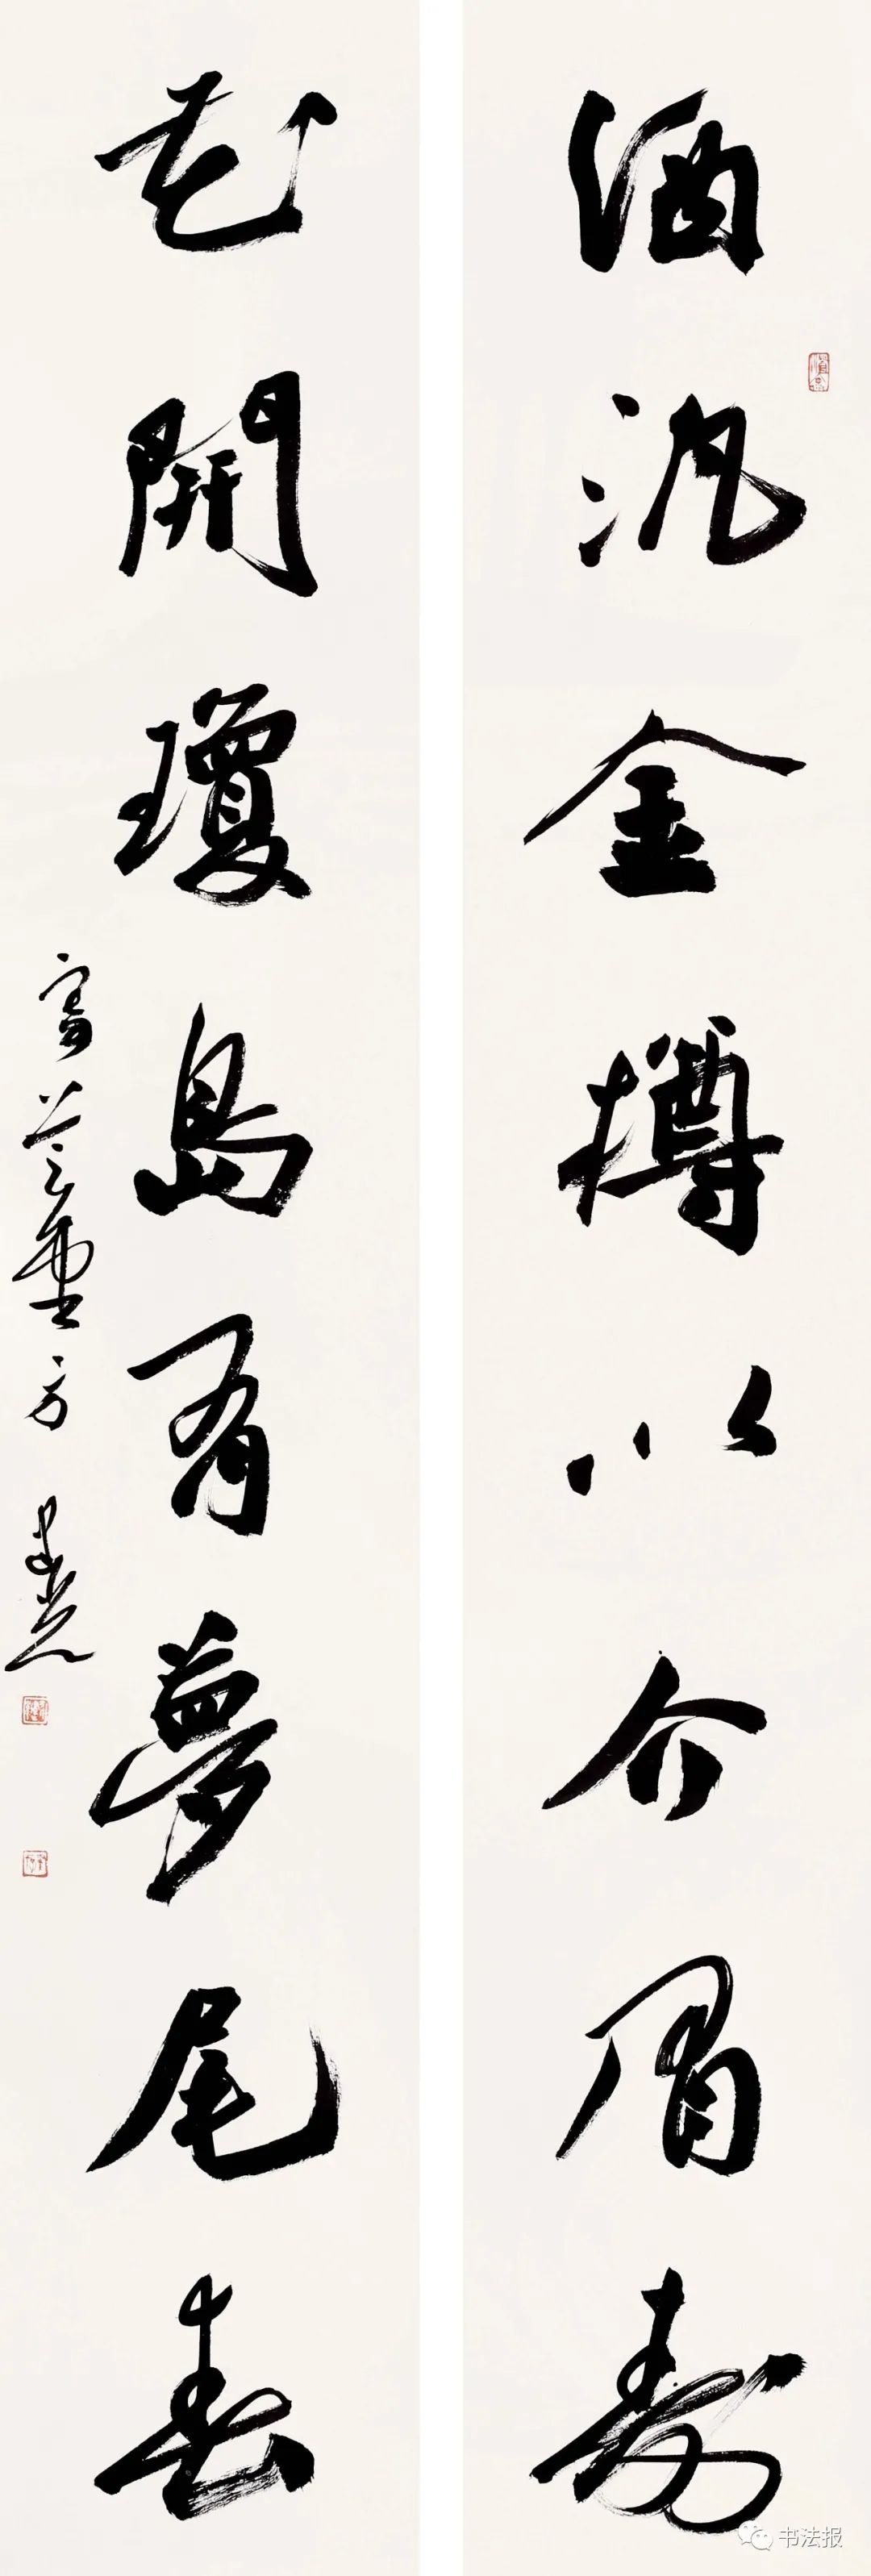 酒汎金樽以介眉壽
花開瓊島有夢尾春
书法报